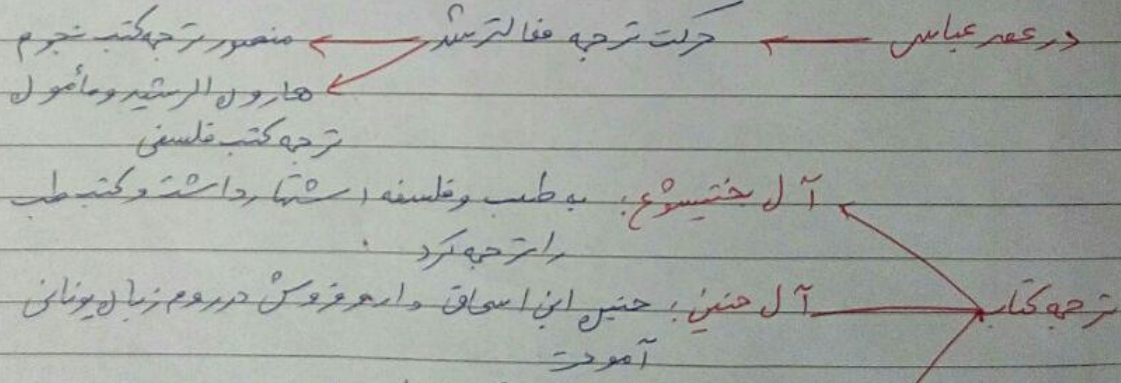 در عصر عباسی ← حرکت ترجمه فعالتر شد ← منصور ترجمه کتب نجوم
هارون الرشید و مأمون
ترجمه کتب فلسفی
آل بختیشوع: به طب و فلسفه اشتهار داشت و کتب طب
را ترجمه کرد.
ترجمه کتاب آل حنین: حنین ابن اسحاق دارو فروش در روم زبان یونانی
آموخت